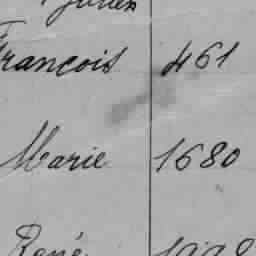 Julien
Francois 461
Marie 1680
René